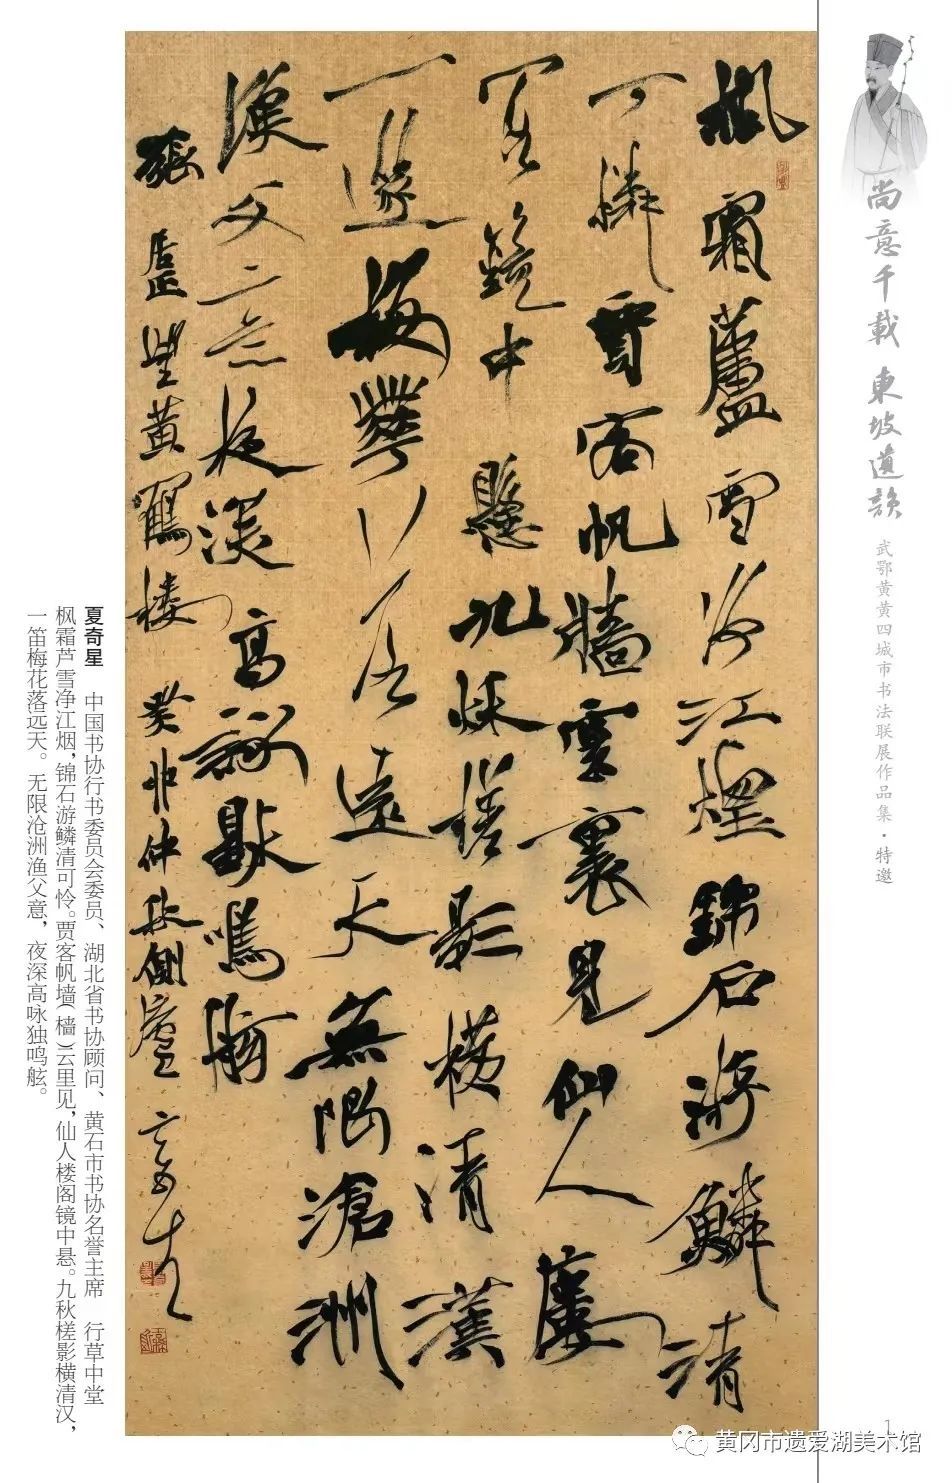 尚意千載 東坡遺韻
武鄂黄黄四城市书法联展作品集·特邀
楓霜蘆雪净江煙錦石游鱗清
可憐賈客帆墻雲裏見仙人廔
閣鏡中懸九秋槎影橫清漢
一篴梅華落遠天無限滄洲
漁父意夜深高詠獨鳴舷
張居正望黄鶴楼 癸卯仲秋側廬
夏奇星 中国书协行书委员会委员、湖北省书协顾问、黄石市书协名誉主席 行草中堂
枫霜芦雪净江烟，锦石游鳞清可怜。贾客帆墙（樯）云里见，仙人楼阁镜中悬。九秋槎影横清汉，
一笛梅花落远天。无限沧洲渔父意，夜深高咏独鸣舷。
1
黄冈市遗爱湖美术馆